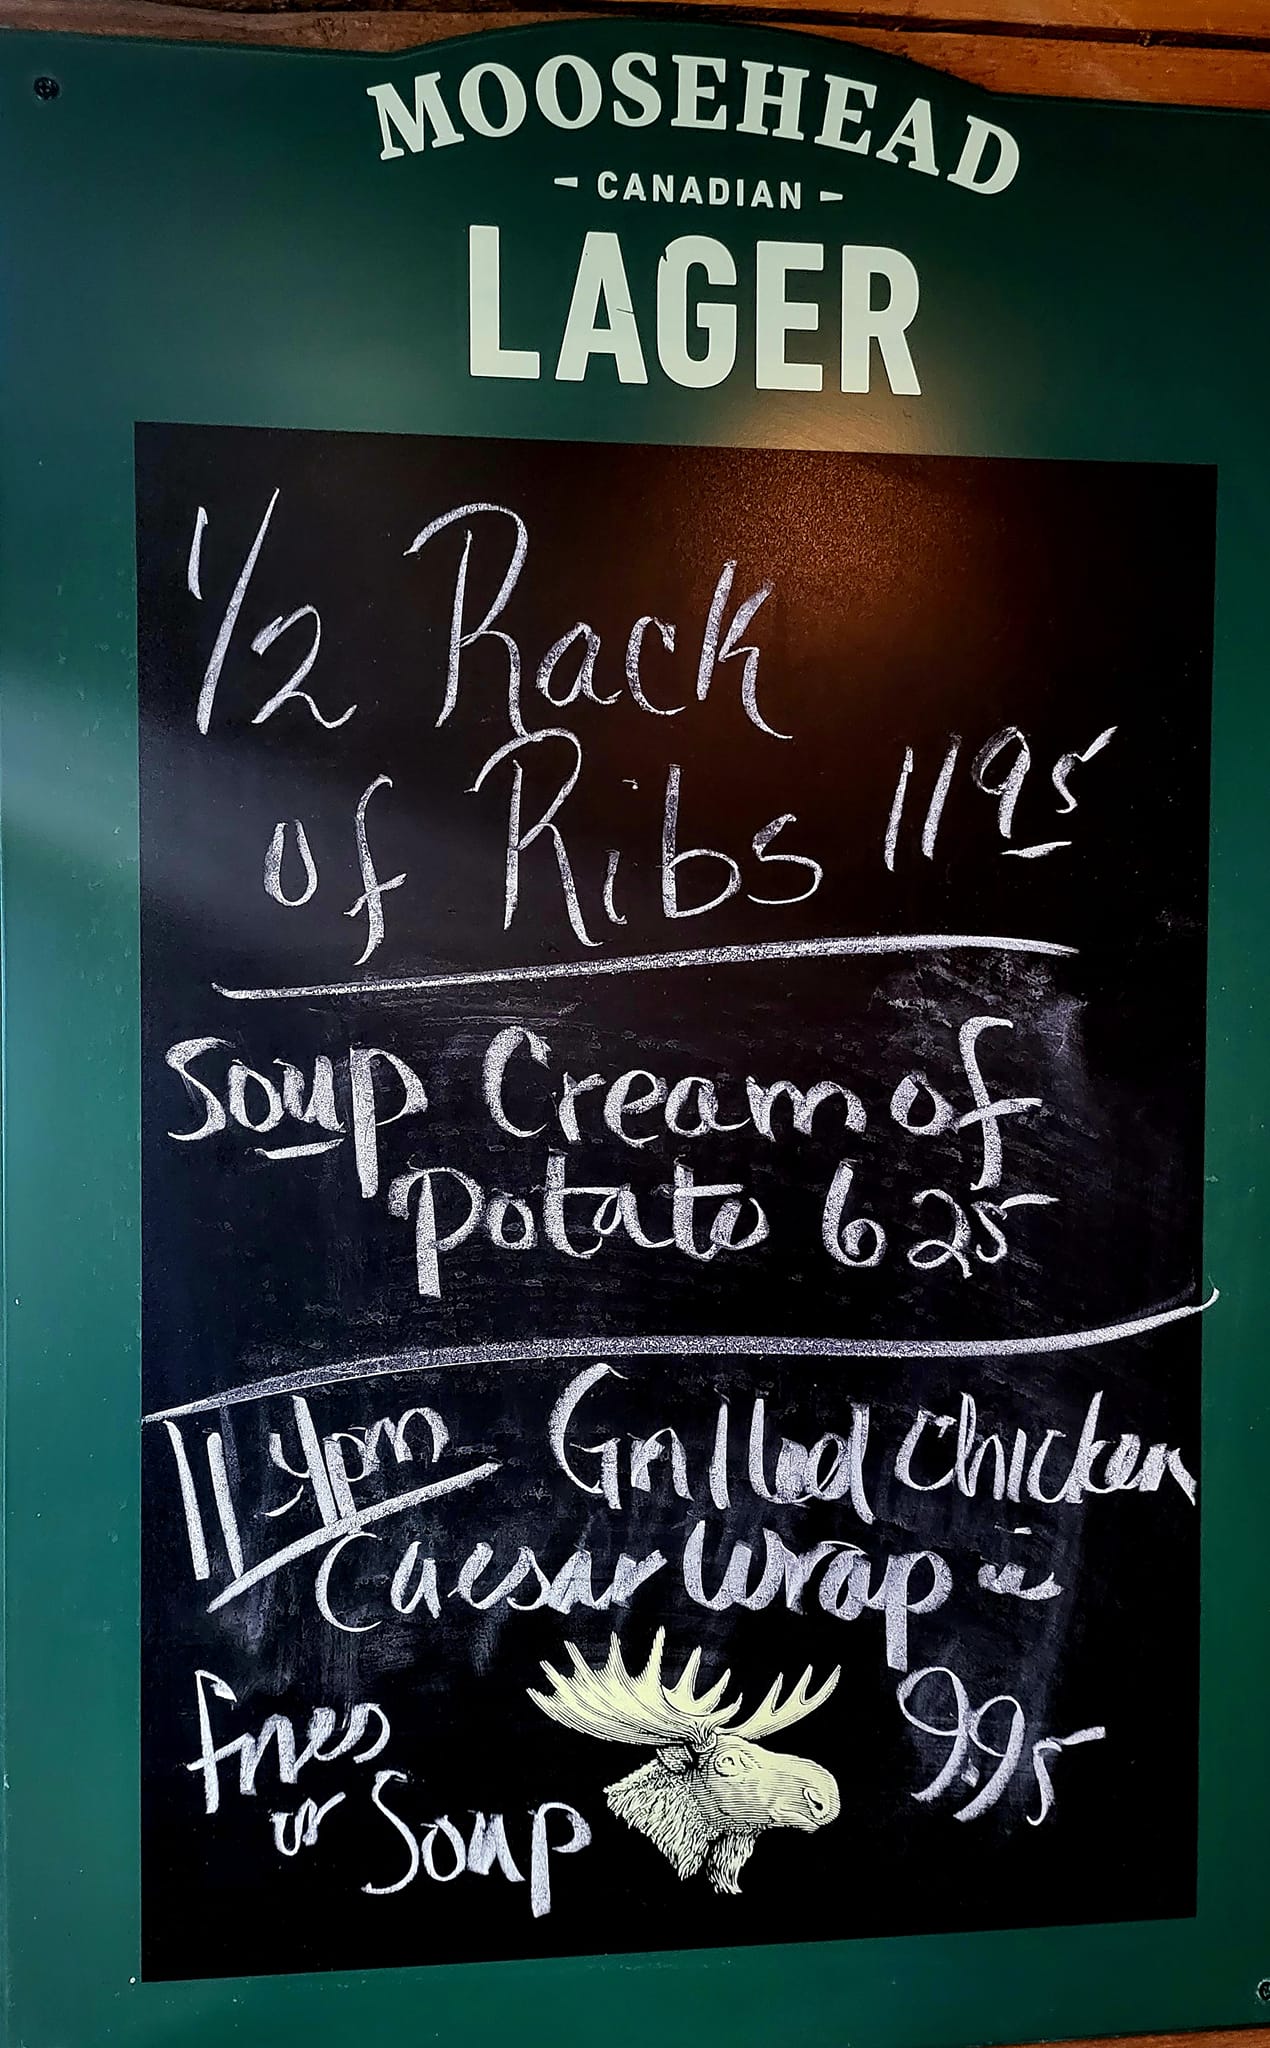 MOOSEHEAD
- CANADIAN -
LAGER
1/2 Rack
of Ribs 11 95
Soup Cream of
Potato 6 25
11-4pm Grilled Chicken
Caesar Wrap
fries 9.95
or Soup